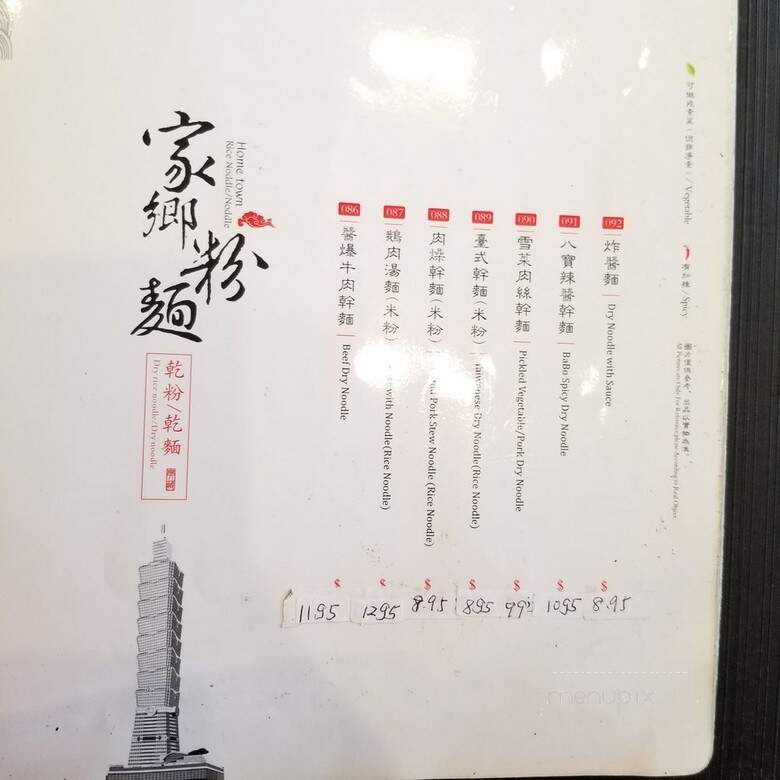 家鄉粉麵
Home town
Rice Noddle/Noddle
乾粉/乾麵
Dry rice noodle/Dry noodle
086 醬爆牛肉幹麵 Beef Dry Noodle $ 11.95
087 鵝肉湯麵(米粉) with Noodle(Rice Noodle) $ 12.95
088 肉燥幹麵(米粉) Pork Stew Noodle (Rice Noodle) $ 8.95
089 臺式幹麵(米粉) Taiwanese Dry Noodle(Rice Noodle) $ 8.95
090 雪菜肉絲幹麵 Pickled Vegetable/Pork Dry Noodle $ 9.95
091 八寶辣醬幹麵 BaBo Spicy Dry Noodle $ 10.95
092 炸醬麵 Dry Noodle with Sauce $ 8.95
/Vegetable
有加辣/Spicy
圖片僅供參考，出品以實物為准。
All Pictures are Only For Reference, please According to Real Object
menupix